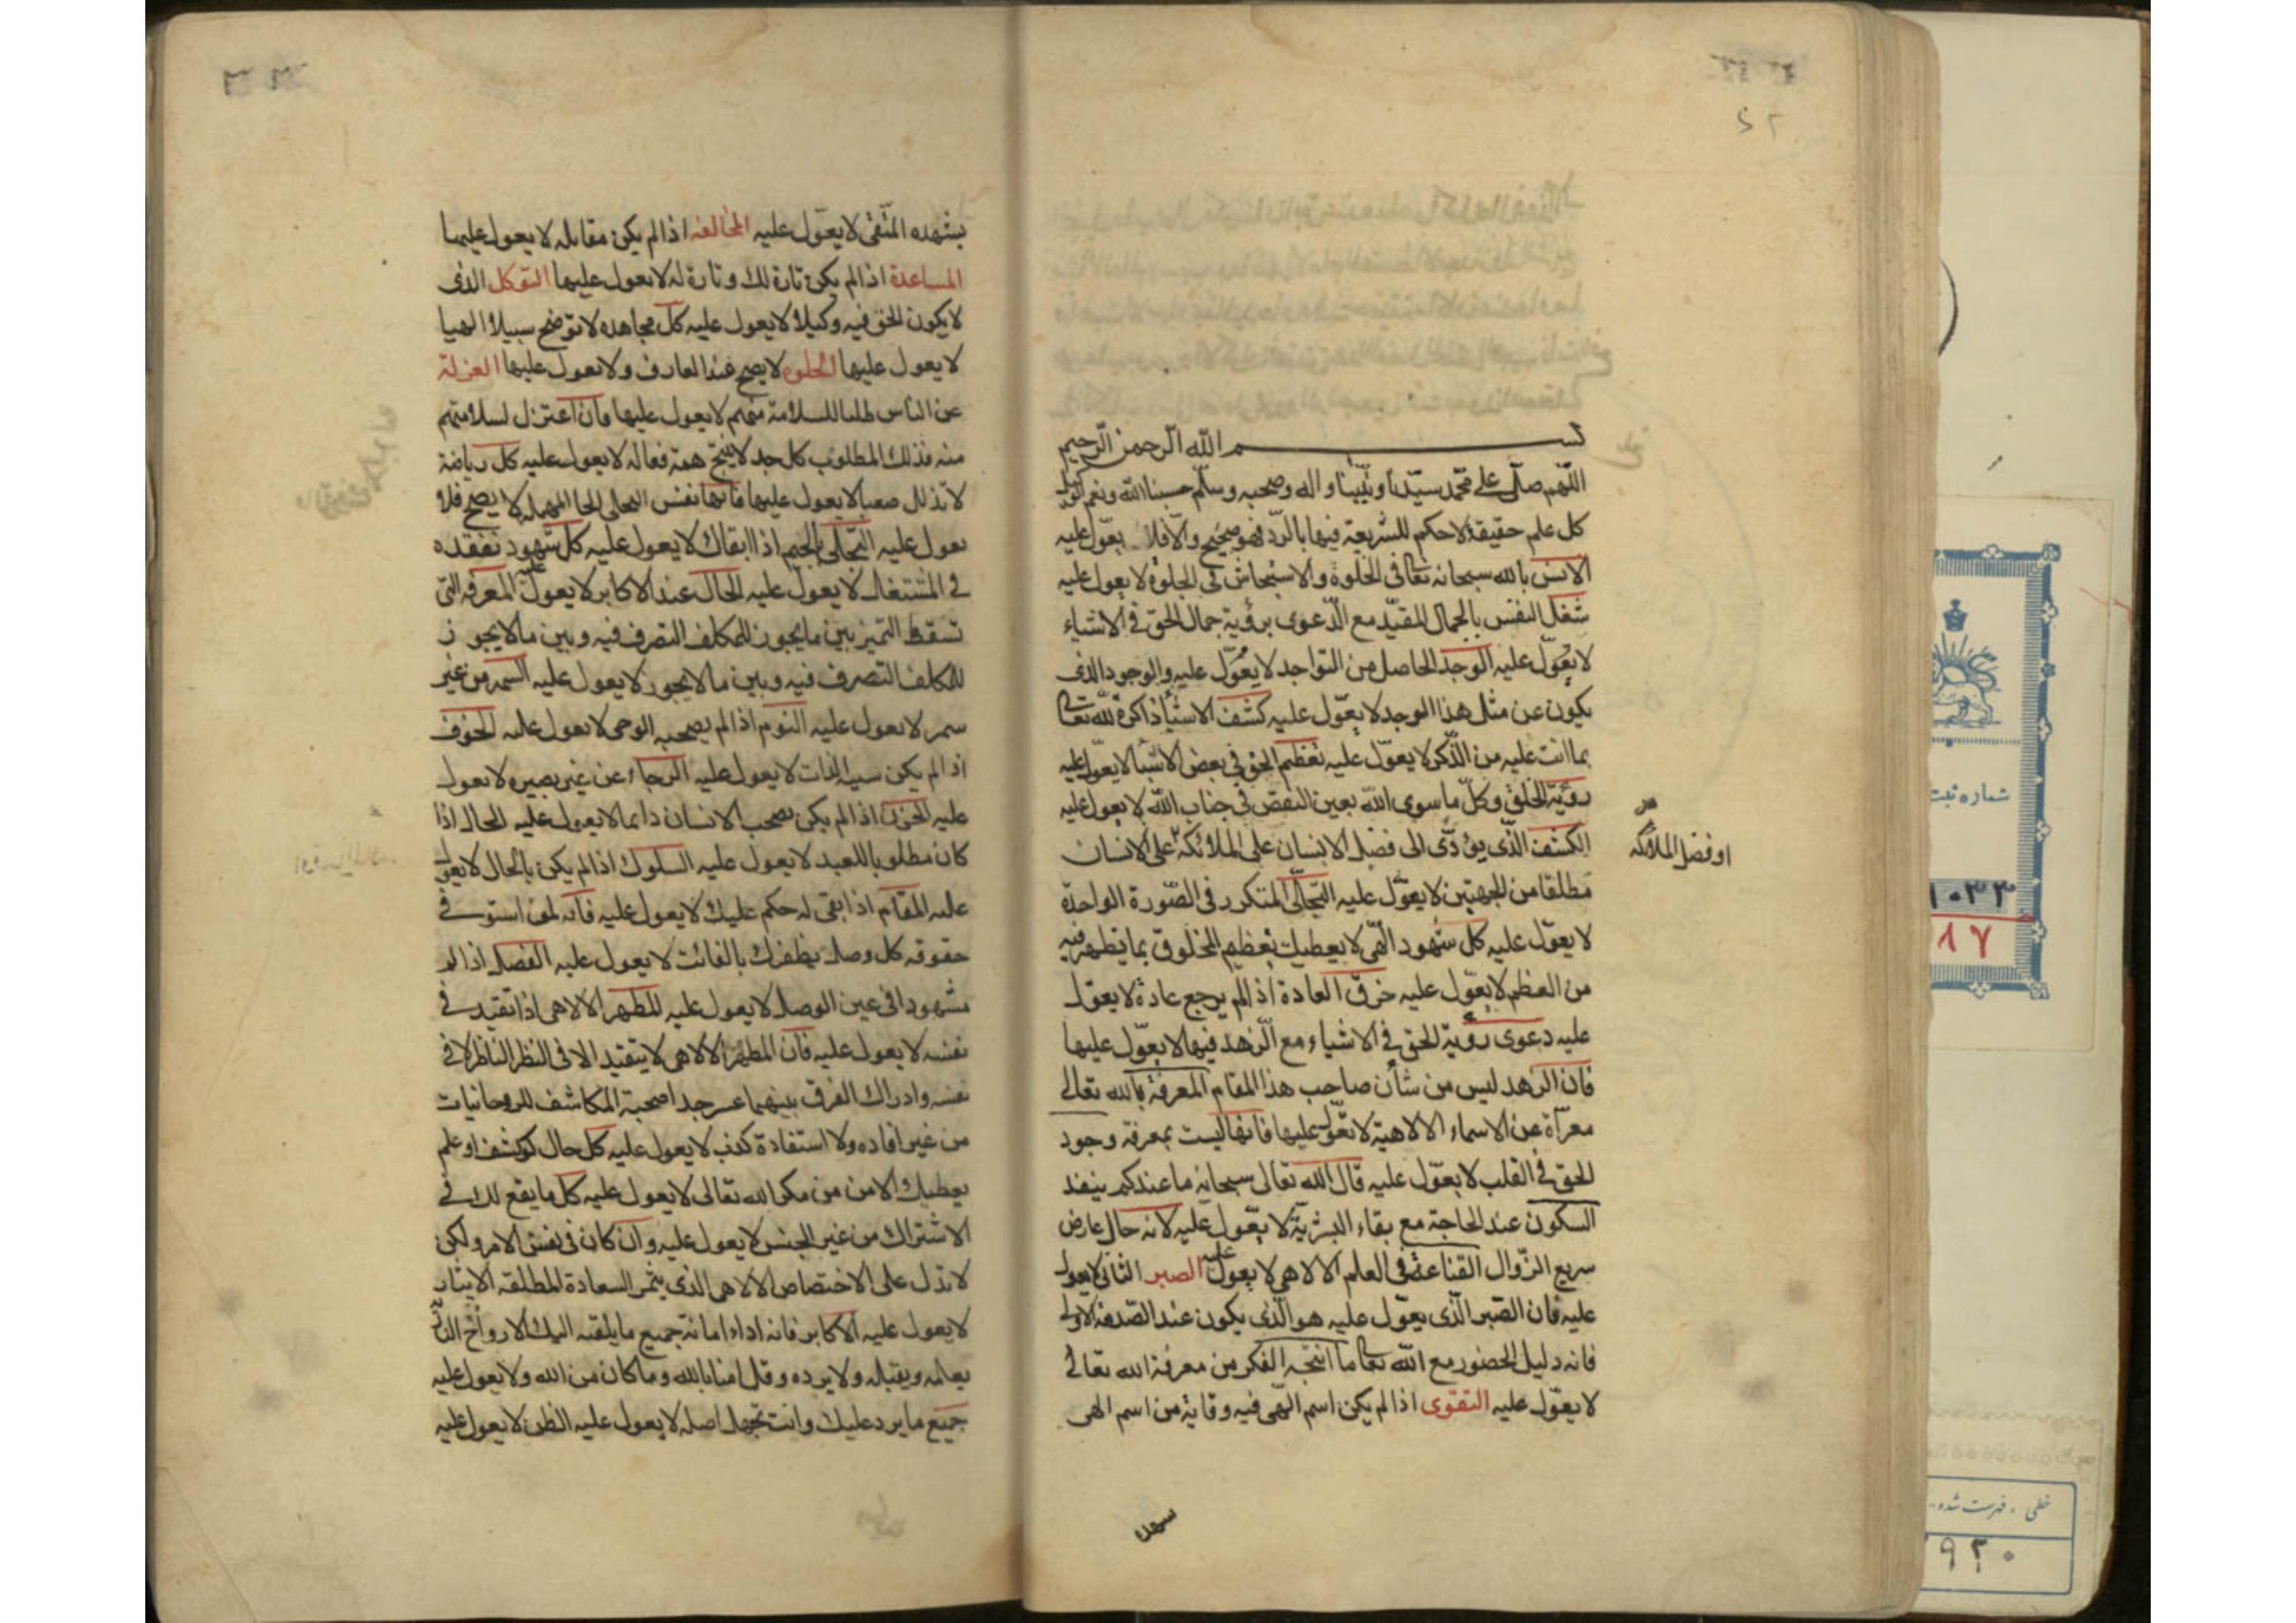 بســـــم الله الرحمن الرحيم
اللهم صل على محمد سيدنا ونبينا واله وصحبه وسلم حسبنا الله ونعم الوكيل
كل علم حقيقة لاحكم للشريعة فيها بالرد فهو صحيح والا فلا يعول عليه
الانس بالله سبحانه تعالى فى الخلوة والاستيحاش فى الجلوة لا يعول عليه
شغل النفس بالجمال المقيد مع الدعوى برؤية جمال الحق فى الاشياء
لا يعول عليه الوجد الحاصل من التواجد لا يعول عليه والوجود الذى
يكون عن مثل هذا الوجد لا يعول عليه كشف الاشيا ذاكرة لله تعالى
بما انت عليه من الذكر لا يعول عليه تعظيم الحق فى بعض الاشيا لا يعول عليه
رؤية الخلق وكل ما سوى الله بعين النقص فى جناب الله لا يعول عليه
الكشف الذى يؤدى الى فضل الانسان على الملائكة على الانسان
او فضل الملائكه
مطلقا من الجهتين لا يعول عليه التجلى المتكرر فى الصورة الواحدة
لا يعول عليه كل شهود الهى لا يعطيك تعظيم المخلوق بما يظهر فيه
من العظم لا يعول عليه خرق العادة اذ الم يرجع عادة لا يعول
عليه دعوى رؤية الحق فى الاشياء مع الزهد فيها لا يعول عليها
فان الزهد ليس من شأن صاحب هذا المقام المعرفة بالله تعالى
معرآة عن الاسماء الالاهية لا تعول عليها فانها ليست بمعرفة وجود
الحق فى القلب لا يعول عليه قال الله تعالى سبحانه ما عندكم ينفد
السكون عند الحاجة مع بقاء البشرية لا يعول عليه لانه حال عارض
سريع الزوال القناعة فى العلم الالاهى لا يعول عليه الصبر الثانى لا يعول
عليه فان الصبر الذى يعول عليه هو الذى يكون عند الصدمة الاولى
فانه دليل الحضور مع الله تعالى ما انتجه الفكر من معرفة الله تعالى
لا يعول عليه التقوى اذا لم يكن اسم الهى فيه وقاية من اسم الهى
يشهده المتقى لا يعول عليه المخالفه اذا لم يكن مقابله لا يعول عليها
المساعدة اذا لم يكن تارة لك وتارة له لا يعول عليها التوكل الذى
لا يكون الحق فيه وكيلا لا يعول عليه كل مجاهده لا توضح سبيلا الهيا
لا يعول عليها الخلوه لا يصح عند العارف ولا يعول عليها العزلة
عن الناس طلبا للسلامة منهم لا يعول عليها فان اعتزل لسلامتهم
منه فذلك المطلوب كل جد لا ينتج همة فعاله لا يعول عليه كل رياضة
لا تذلل صعبا لا يعول عليها فانها نفس التحلى بالحا المهمله لا يصح فلا
يعول عليه التجلى بالجيم اذا ابقاك لا يعول عليه كل شهود تفقده
فى المستقبل لا يعول عليه الحال عند الاكابر لا يعول عليه المعرفه التى
تسقط التميز بين ما يجوز للمكلف التصرف فيه وبين ما لا يجوز
للمكلف التصرف فيه وبين ما لا يجوز لا يعول عليه السهر من غير
سمر لا يعول عليه النوم اذا لم يصحبه الوحى لا يعول عليه الخوف
اذ الم يكن سببه الذات لا يعول عليه الرجاء عن غير بصيره لا يعول
عليه الحزن اذا لم يكن يصحب الانسان دايما لا يعول عليه الحال اذا
كان مطلوبا للعبد لا يعول عليه السلوك اذا لم يكن بالحال لا يعول
عليه المقام اذا ابقى له حكم عليك لا يعول عليه فانه لمن استوفى
حقوقه كل وصل يظفرك بالفائت لا يعول عليه الفصل اذا لم
مشهودا فى عين الوصل لا يعول عليه المظهر الالاهى اذا تقيد فى
نفسه لا يعول عليه فان المظهر الالاهى لا يتقيد الا فى النظر الناظر لا فى
نفسه وادراك الفرق بينهما عسر جدا صحبة المكاشف للروحانيات
من غير افاده ولا استفادة كذب لا يعول عليه كل حال كوكشف او علم
يعطيك الامن من مكر الله تعالى لا يعول عليه كل ما يقع لك فى
الاشتراك من غير الجنس لا يعول عليه وان كان فى نفس الامر ولكن
لا تدل على الاختصاص الالاهى الذى يثمر السعادة المطلقه الايثار
لا يعول عليه الاكابر فانه اداء امانة جميع ما يلقيه اليك الارواح
يعلمه ويقبله ولا يرده وقل امنا بالله وما كان من الله ولا يعول عليه
جميع ما يرد عليك وانت تجهل اصله لا يعول عليه الظن لا يعول عليه
شماره ثبت
١٠٣٣
١٧
خطی، فهرست شده
٩٢٠